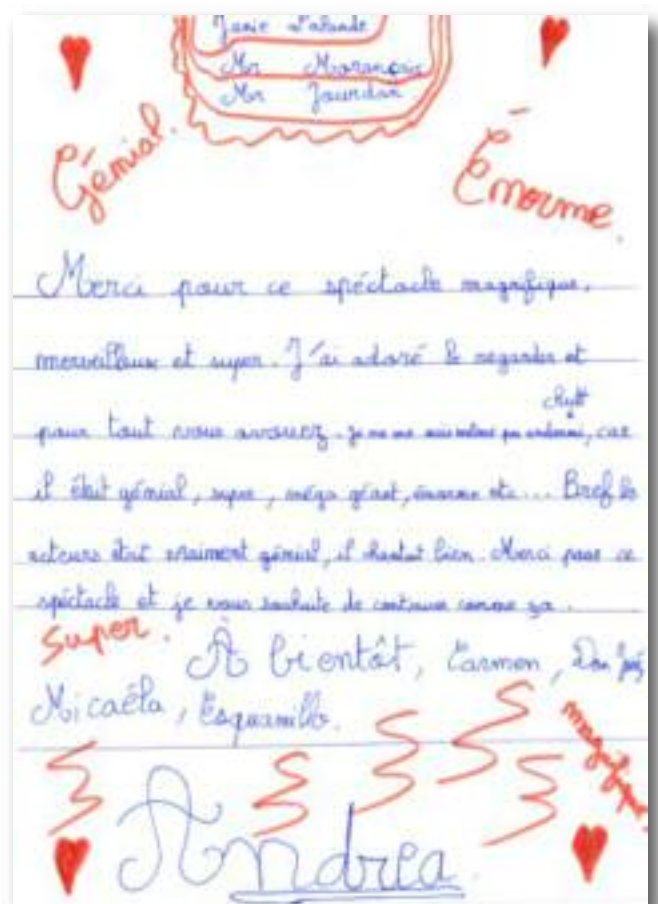 Junie
Mr
Mr Jourdan
Génial.
Énorme.
Merci pour ce spéctacle magnifique,
merveilleux et super. J'ai adoré le regarder et
chutt
pour tout vous avouez. je ne me suis même pas endormi, car
il était génial, supe, méga géant, énorme etc... Bref les
acteurs était vraiment génial, il chantait bien. Merci pour ce
spéctacle et je vous souhaite de continuer comme ça.
Super.
À bientôt, Carmen, Don José
Micaéla, Esquamillo.
magnifique.
Andrea.